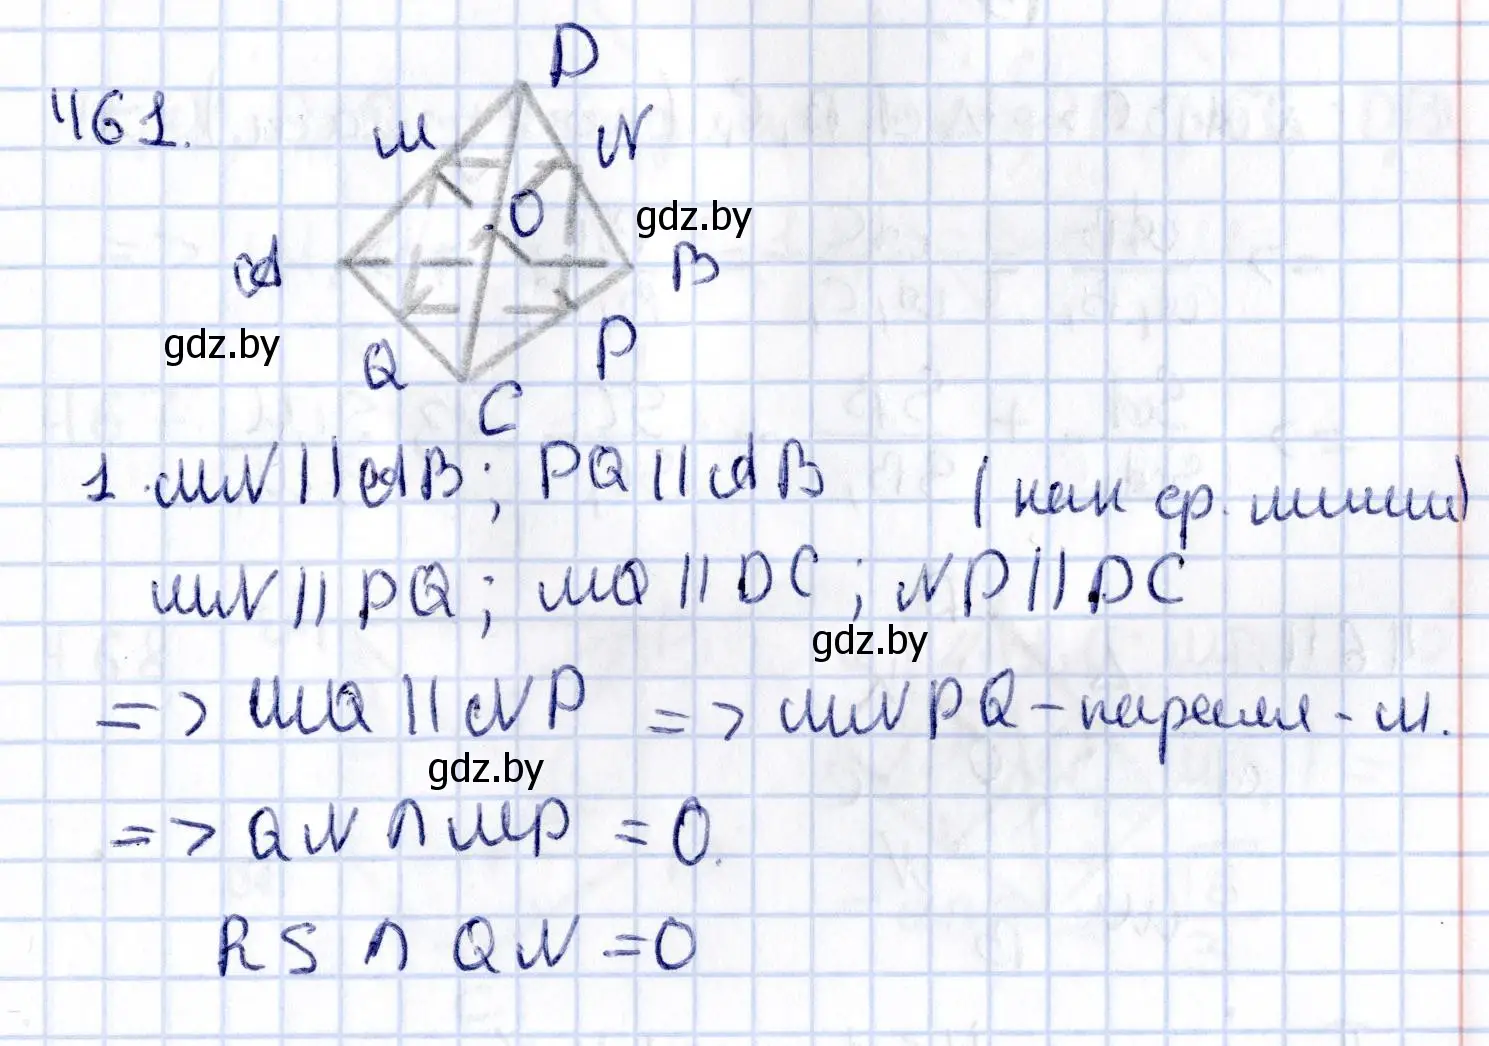 461.
D
M
N
O
gdz.by
A
B
gdz.by
Q
P
C
1. MN || AB; PQ || AB (как ср. линии)
MN || PQ; MQ || DC; NP || DC
gdz.by
=> MQ || NP => MNPQ - паралл-м.
gdz.by
=> QN ∩ MP = O.
RS ∩ QN = O